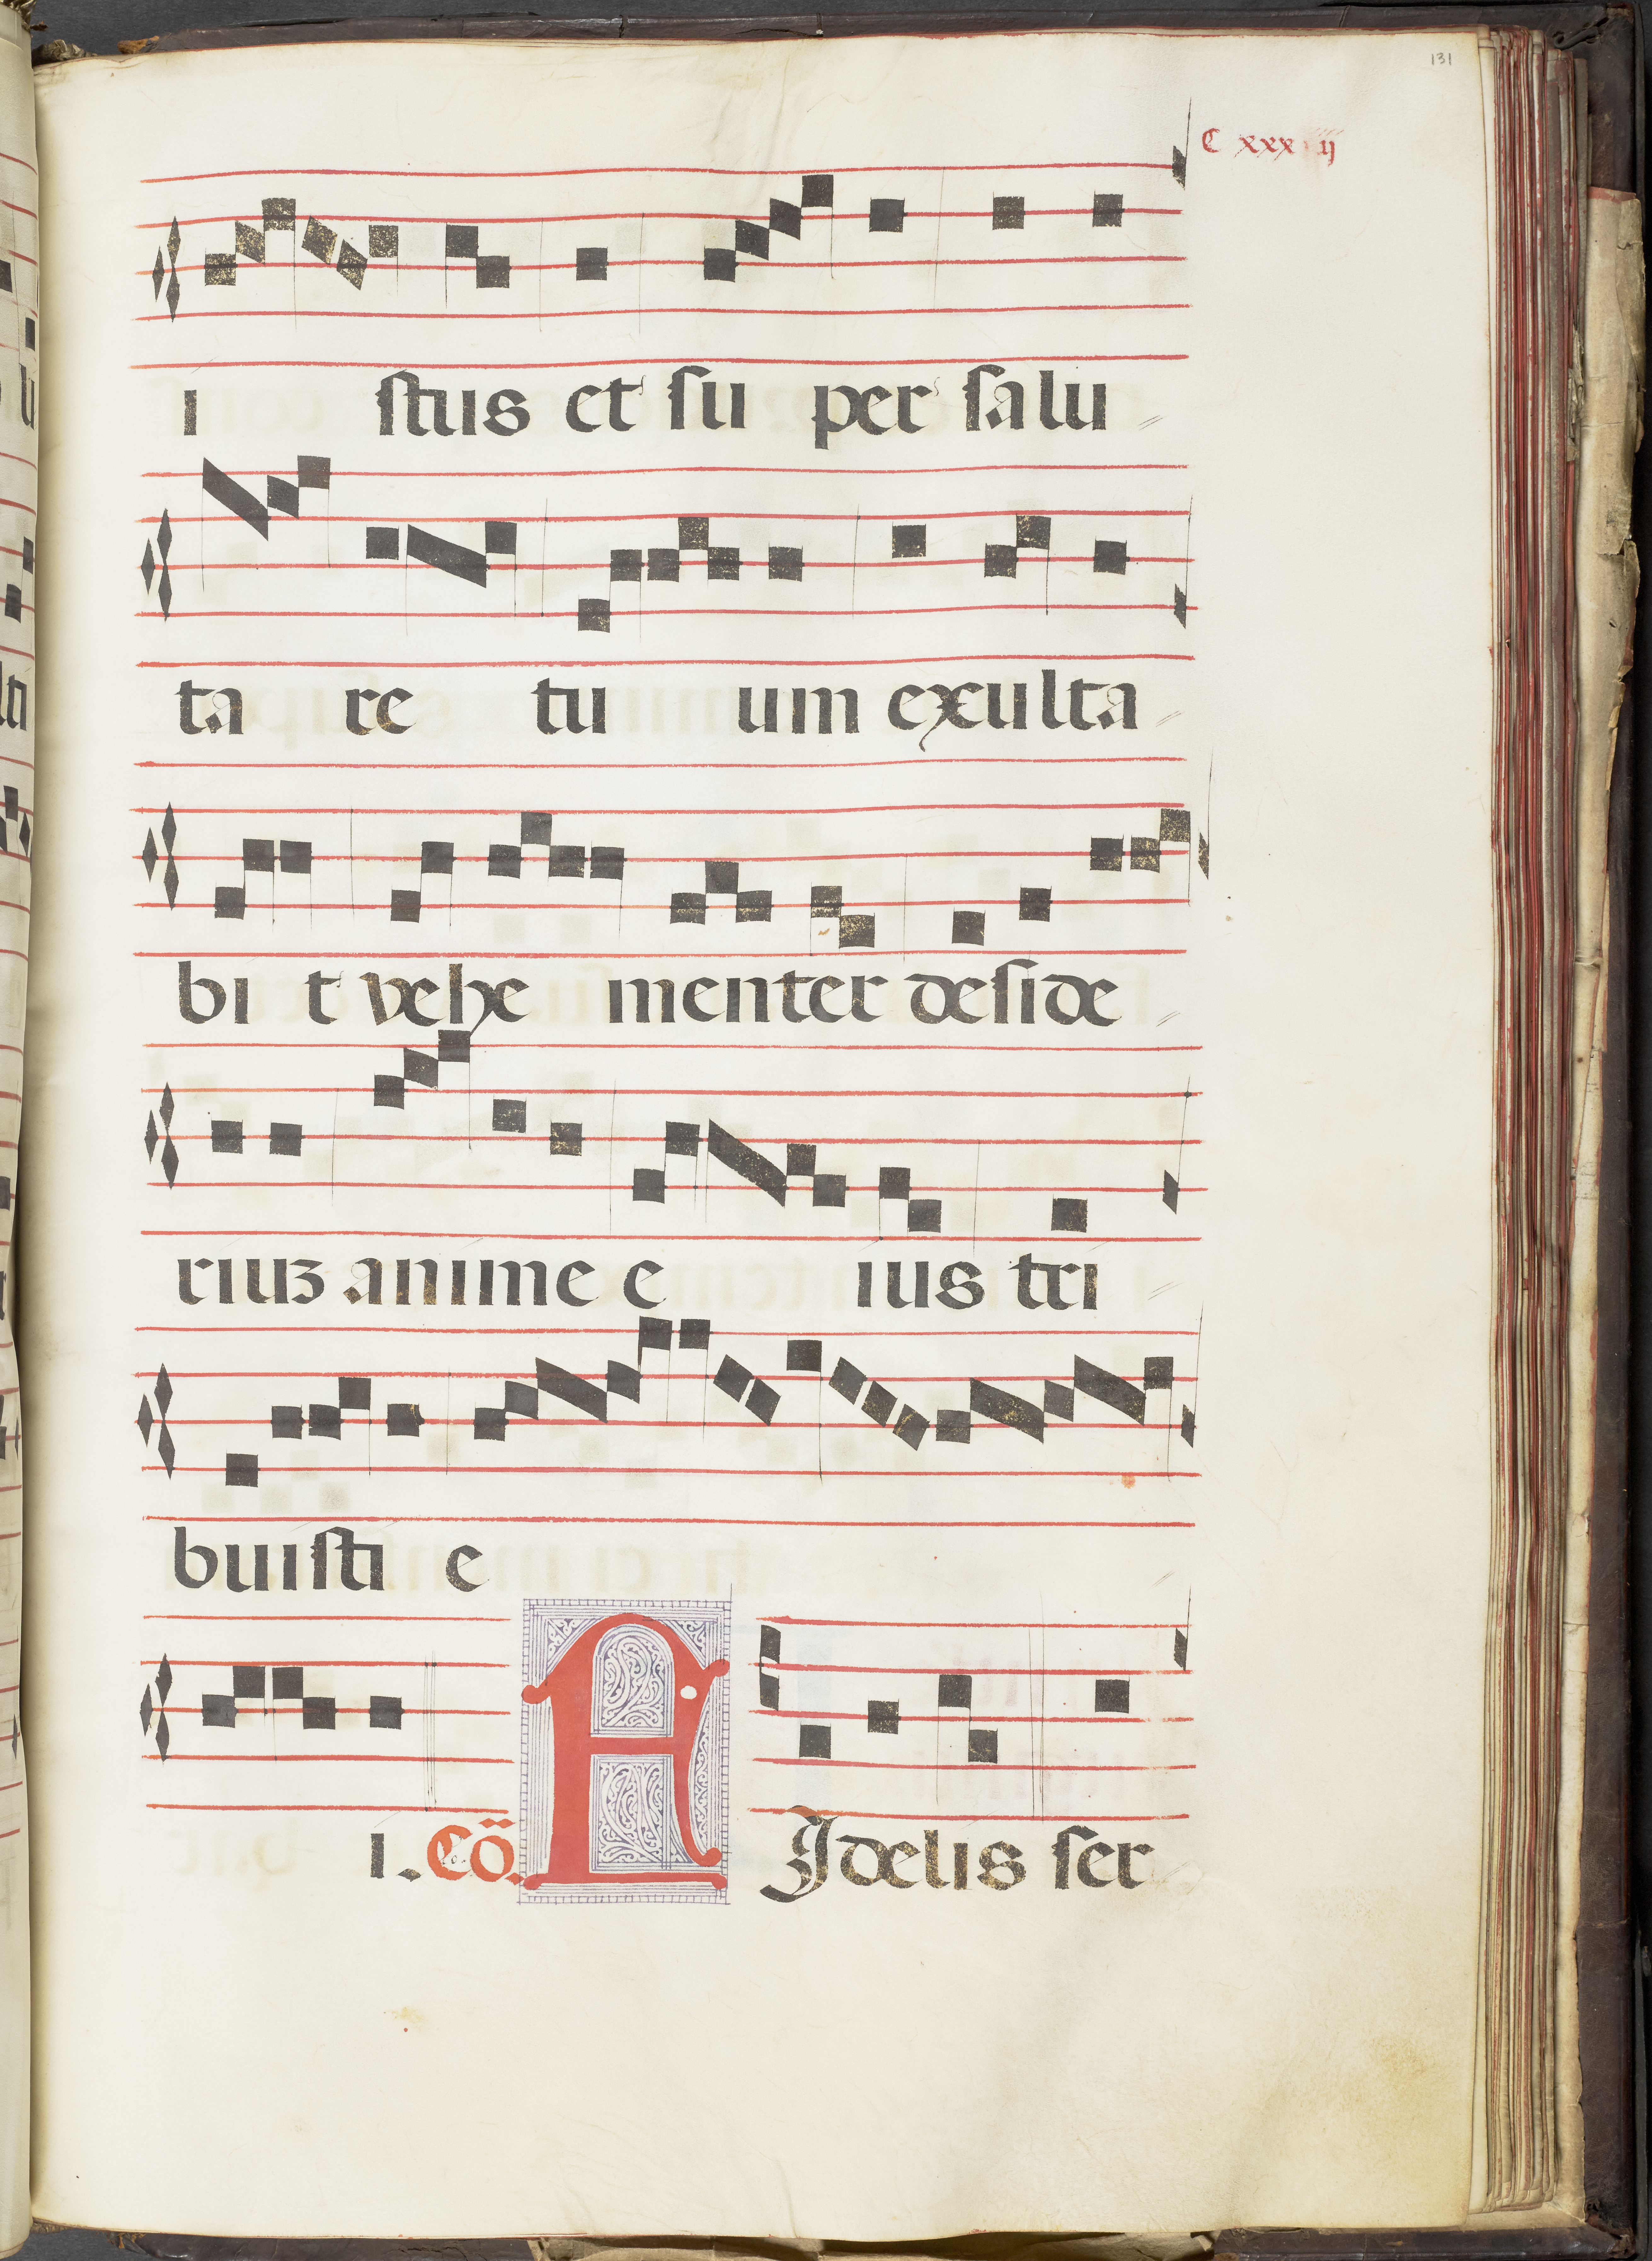 131
C xxx ij
i stus et su per salu
ta re tu um exulta
bi t vehe menter deside
riuz anime e ius tri
buisti e
i. Cō. F Idelis ser